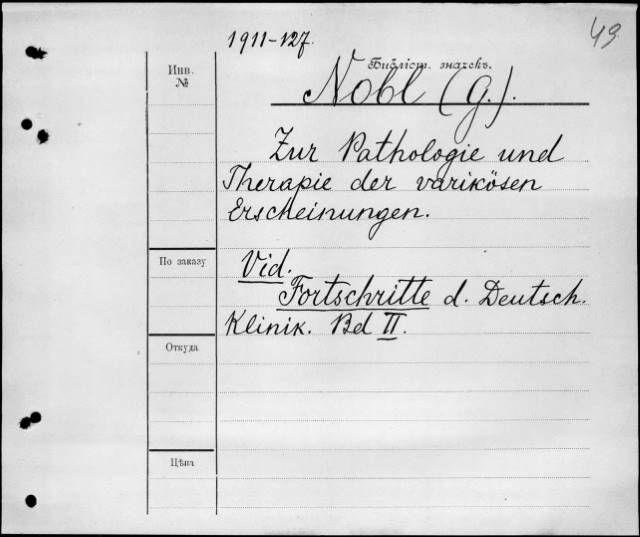 1911-127.
49
Инв. №
Библіот. значекъ.
Nobl (G.).
Zur Pathologie und
Therapie der varikösen
Erscheinungen.
По заказу
Vid.
Fortschritte d. Deutsch.
Klinik. Bd II.
Откуда
Цѣна